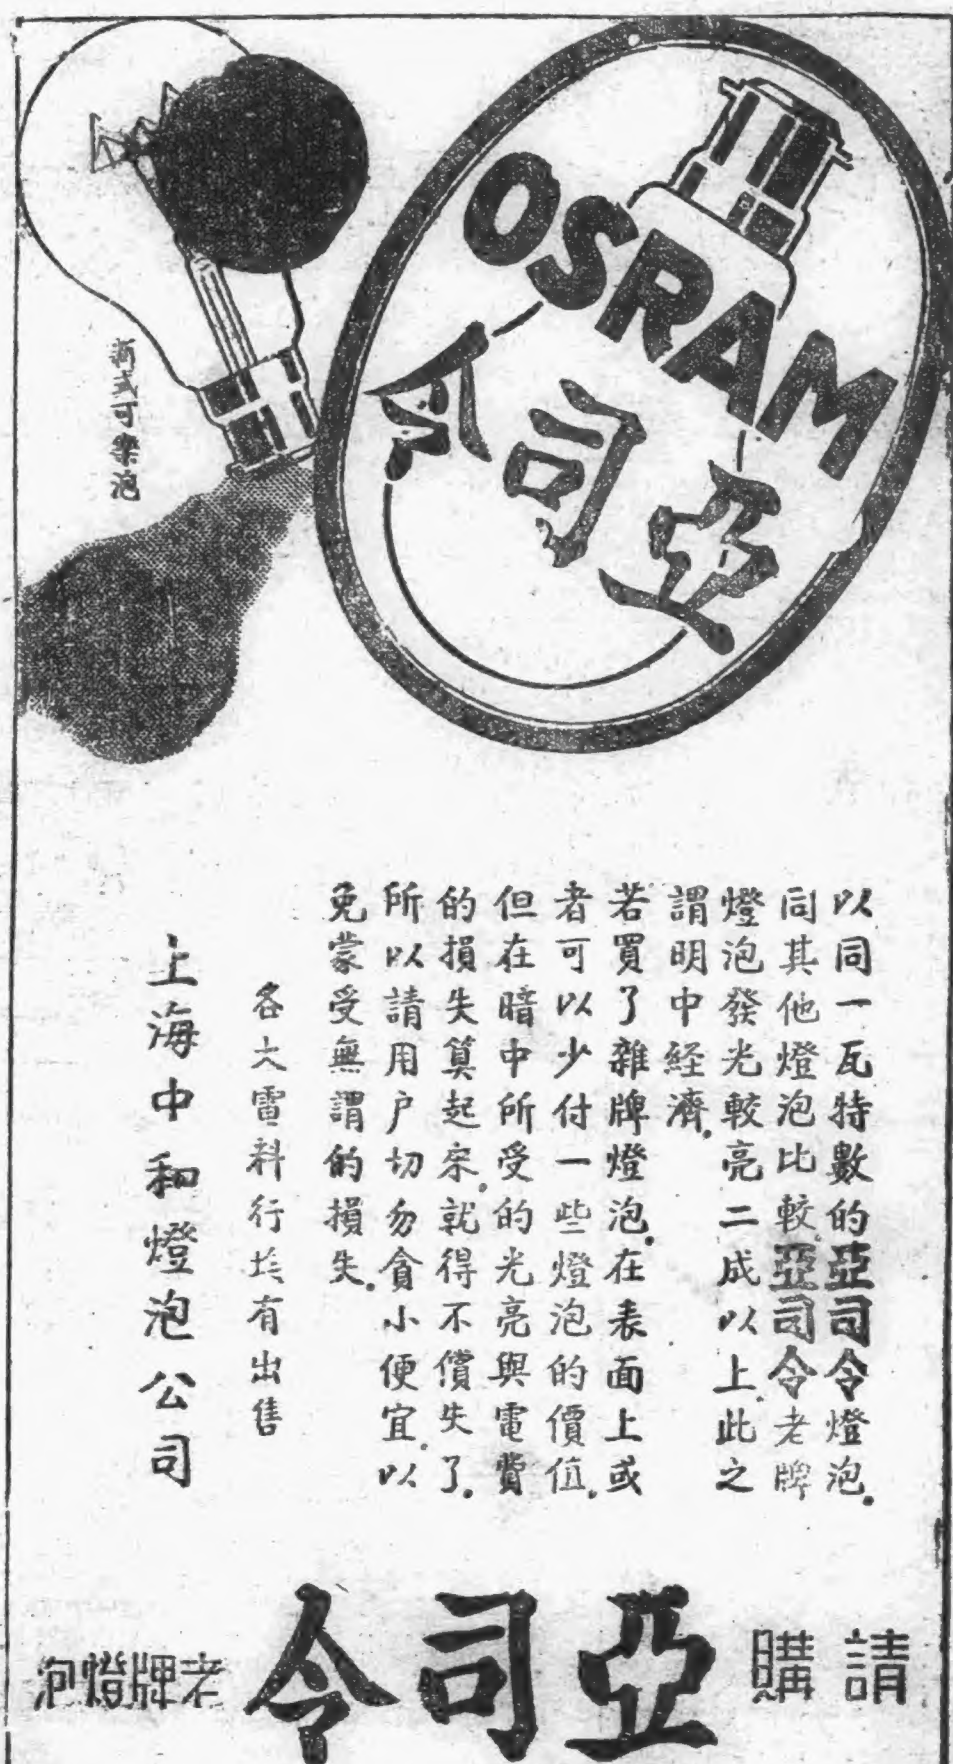 OSRAM
亞司令
新式可樂泡
以同一瓦特數的亞司令燈泡.
同其他燈泡比較.亞司令老牌
燈泡發光較亮二成以上.此之
謂明中経濟.
若買了雜牌燈泡.在表面上或
者可以少付一些燈泡的價值.
但在暗中所受的光亮與電費
的損失算起來.就得不償失了.
所以請用户切勿貪小便宜.以
免蒙受無謂的損失.
各大電料行均有出售
上海中和燈泡公司
請購
亞司令
老牌燈泡